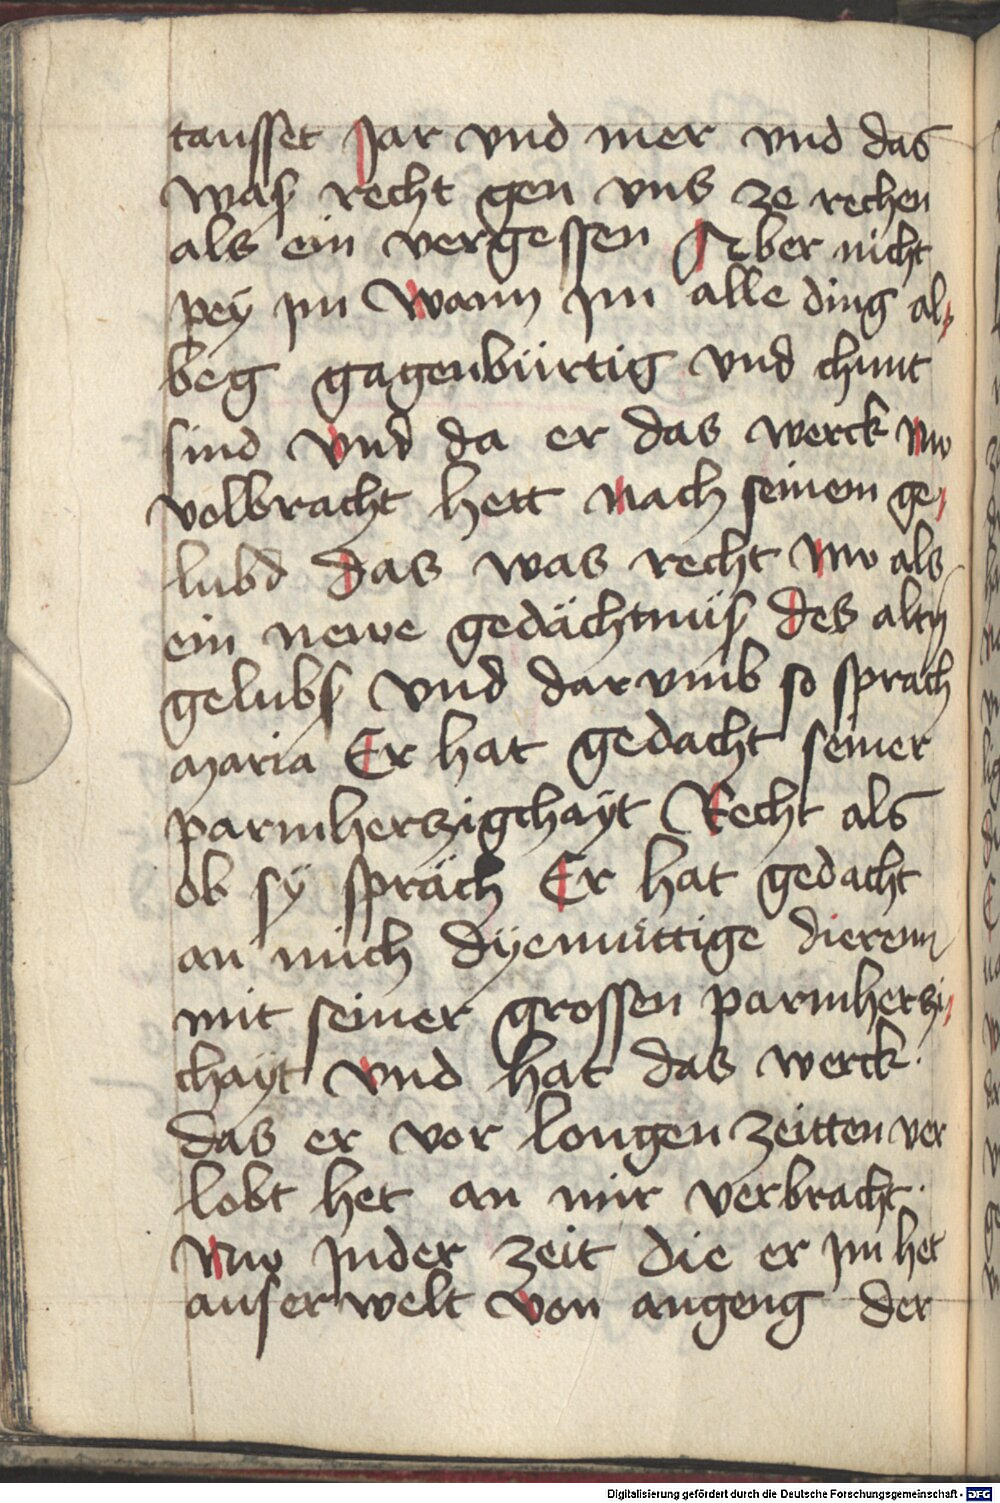 tausset Jar vnd mer vnd das
was recht gen vns ze rechen
als ein vergessen Aber nicht
pey im Wann im alle ding al⸗
beg gagenbürtig vnd chunt
sind vnd da er das werck Nw
volbracht hett Nach seinem ge⸗
lubd das was recht Nw als
ein newe gedächtnüß des altn
gelubß vnd dar vmb so sprach
maria Er hat gedacht seiner
parmherczigchayt Recht als
ob sÿ spräch Er hat gedacht
an mich dÿemüttige dieren
mit seiner grossen parmherczi⸗
chayt vnd hat das werck.
das er vor longen zeitten ver
lobt het an mir verbracht.
Nw Jnder zeit die er im het
auserwelt von angeng der
Digitalisierung gefördert durch die Deutsche Forschungsgemeinschaft - DFG